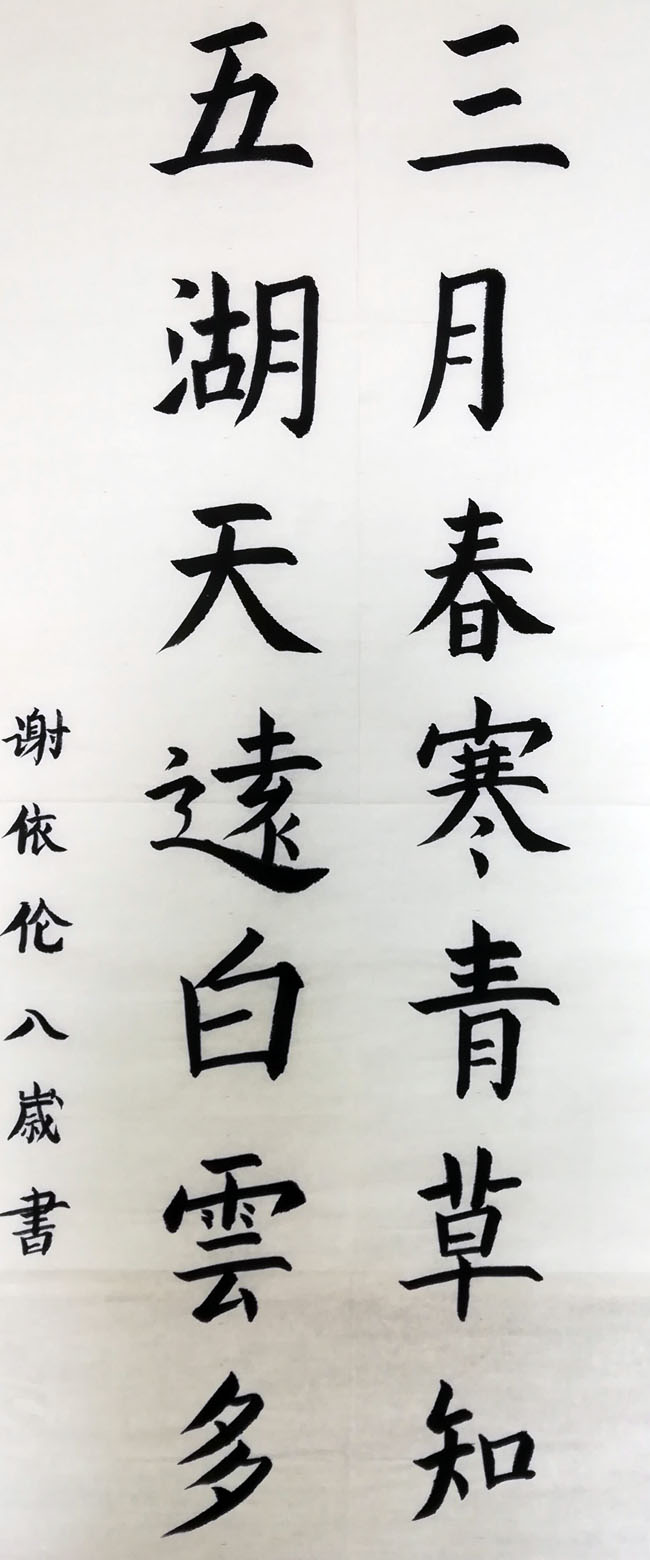 三月春寒青草知
五湖天遠白雲多
谢依伦八歳書